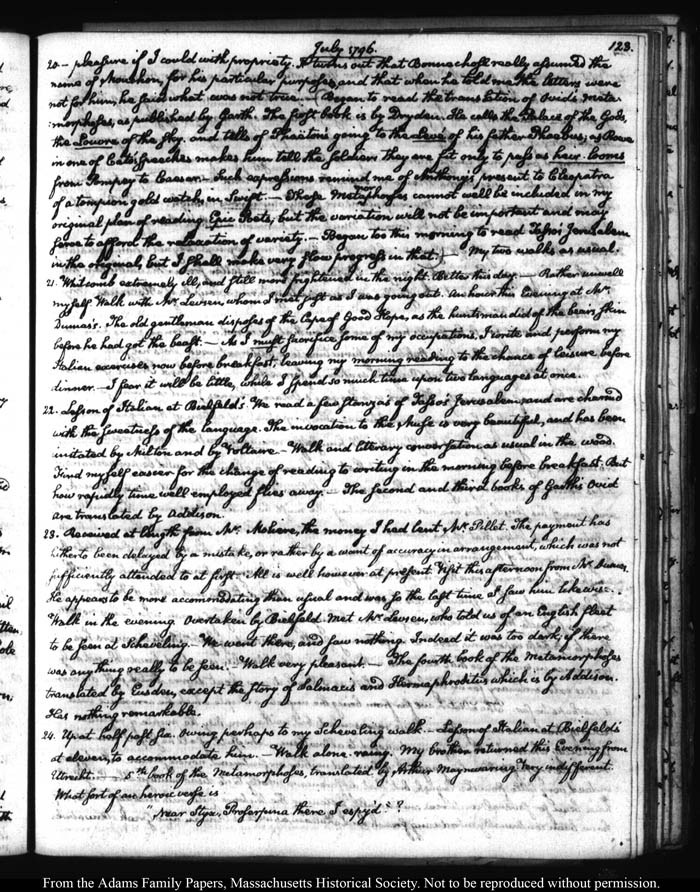 July 1796.
123.
20.— pleasure if I could with propriety. It turns out that Bonnechose really assumed the
name of Mouchon, for his particular purposes, and that when he told me the letters were
not for him, he said what was not true.— Began to read the translation of Ovids Meta-
morphoses, as published by Garth. The first book is by Dryden. He calls the Palace of the Gods,
the Louvre of the sky. and tells of Phaëton's going to the Levé of his father Phoebus; as Rowe
in one of Cato's speeches makes him tell the soldiers they are fit only to pass as heir-looms
from Pompey to Caesar.— Such expressions remind me of Anthony's present to Cleopatra
of a tompion gold watch, in Swift.— These Metamorphoses cannot well be included in my
original plan of reading Epic Poets; but the variation will not be important and may
serve to afford the relaxation of variety.— Began too this morning to read Tasso's Jerusalem
in the original, but I shall make very slow progress in that.— My two walks as usual.
21. Whitcomb extremely ill, and still more frightened in the night. Better this day.— Rather unwell
myself. Walk with Mr. Levsen, whom I met just as I was going out. An hour this Evening at Mr.
Dumas's. The old gentleman disposes of the Cape of Good Hope, as the huntsman did of the bears skin
before he had got the beast.— As I must sacrifice some of my occupations, I write and perform my
Italian exercises now before breakfast, leaving my morning reading to the chance of leisure before
dinner.— I fear it will be little, while I spend so much time upon two languages at once.
22. Lesson of Italian at Bielfeld's. We read a few stanza's of Tasso's Jerusalem and are charmed
with the sweetness of the language. The invocation to the Muse is very beautiful, and has been
imitated by Milton and by Voltaire.— Walk and literary conversation as usual in the wood.
Find myself easier for the change of reading to writing in the morning before breakfast. But
how rapidly time well employed flies away.— The second and third books of Garth's Ovid
are translated by Addison.
23. Received at length from Mr. Moliere, the money I had lent Mr. Pillet. The payment has
hitherto been delayed by a mistake, or rather by a want of accuracy in arrangement, which was not
sufficiently attended to at first. All is well however at present. Visit this afternoon from Mr. Dumas.
He appears to be more accommodating than usual and was so the last time I saw him likewise.
Walk in the evening. Overtaken by Bielfeld. Met Mr. Levsen, who told us of an English fleet
to be seen at Scheveling. We went there, and saw nothing. Indeed it was too dark, if there
was any thing really to be seen.— Walk very pleasant.— The fourth book of the Metamorphoses
translated by Eusden, except the story of Salmacis and Hermaphroditus which is by Addison.
Has nothing remarkable.
24. Up at half past six. owing perhaps to my Scheveling walk.— Lesson of Italian at Bielfeld's
at eleven, to accommodate him.— Walk alone. rainy. My brother returned this Evening from
Utrecht.— 5th. book of the Metamorphoses, translated by Arthur Maynwaring. Very indifferent.
What sort of an heroic verse is
"Near Styx, Proserpina there I espy'd"?
From the Adams Family Papers, Massachusetts Historical Society. Not to be reproduced without permission.